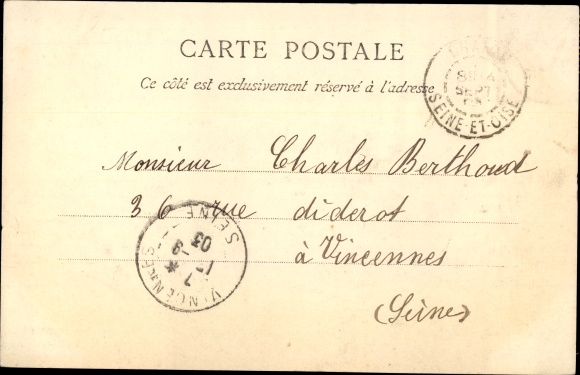 CARTE POSTALE
Ce côté est exclusivement réservé à l'adresse
SEPT
SEINE-ET-OISE
Monsieur Charles Berthoud
36 rue diderot
à Vincennes
(Seine)
VINCENNES
7
9
03
SEINE